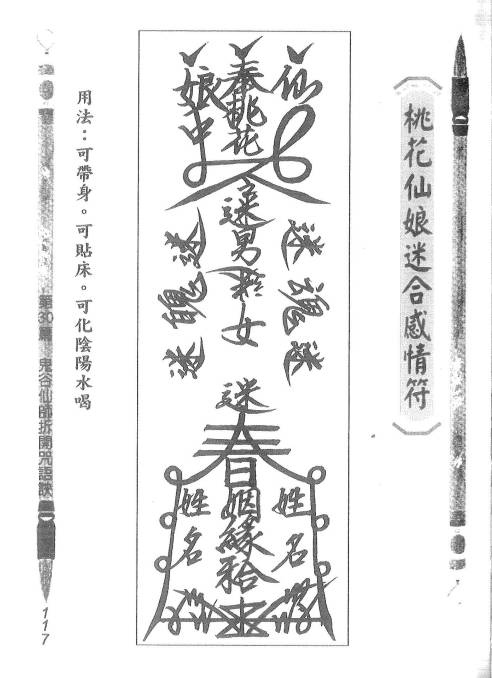 桃花仙娘迷合感情符
仙
奉桃花
娘中
迷男
女
迷魂迷
迷魂迷
迷
春
姻緣
來
姓名
姓名
用法：可帶身。可貼床。可化陰陽水喝
第30篇 鬼谷仙師拆開咒語訣
117